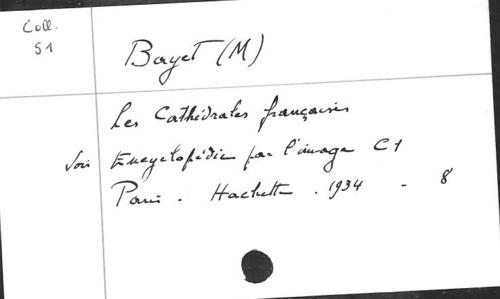 Coll.
51
Bayet (M)
Les Cathédrales françaises
Voir Encyclopédie par l'image C1
Paris. Hachette. 1934 - 8